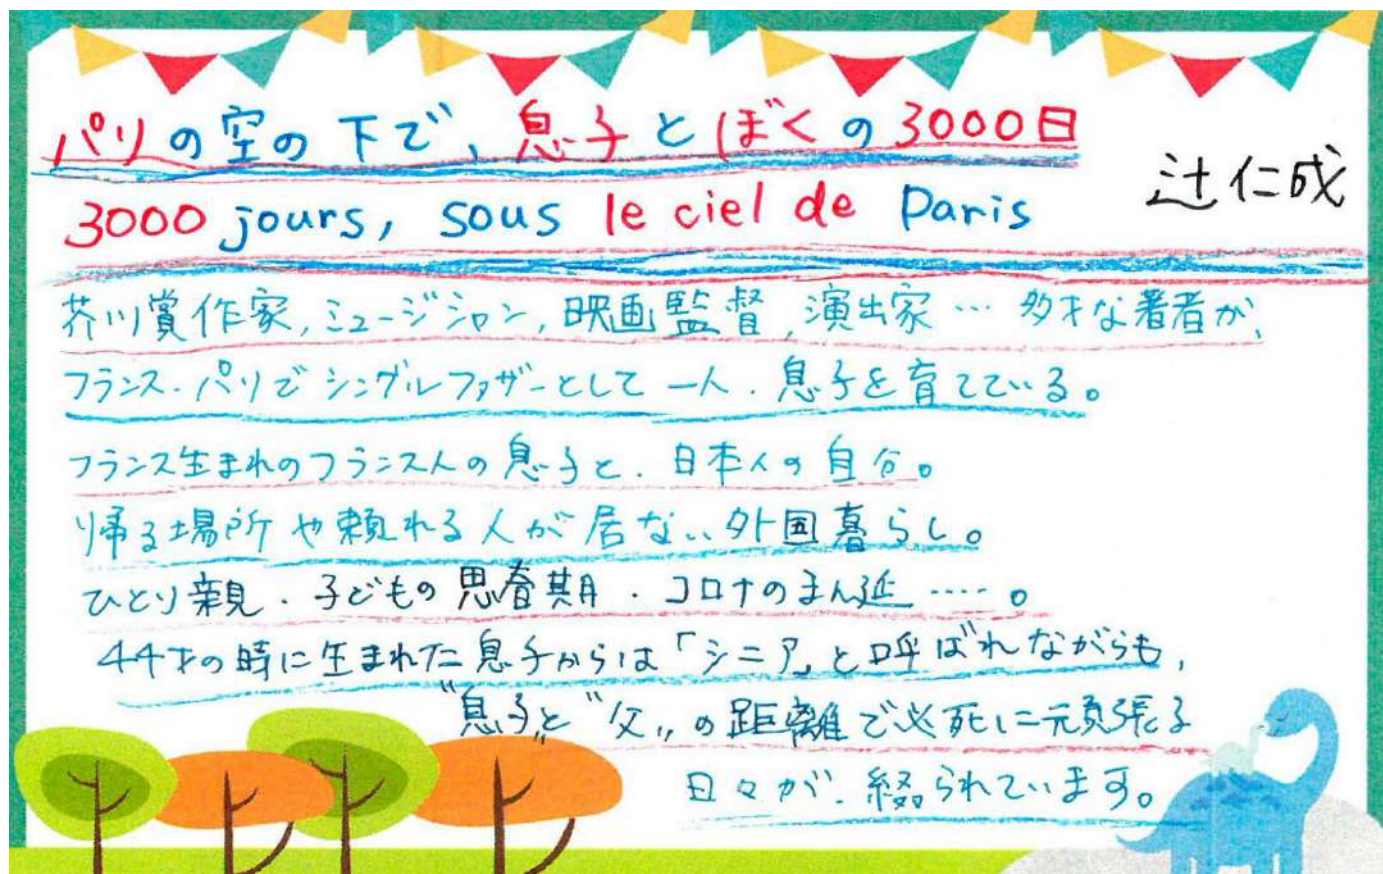 パリの空の下で、息子とぼくの3000日
辻仁成
3000 jours, sous le ciel de Paris
芥川賞作家,ミュージシャン,映画監督,演出家…多才な著者が、
フランス.パリでシングルファザーとして一人.息子を育てている。
フランス生まれのフランス人の息子と.日本人の自分。
帰る場所や頼れる人が居ない外国暮らし。
ひとり親.子どもの思春期.コロナのまん延……。
44才の時に生まれた息子からは「シニア」と呼ばれながらも,
"息子"と"父"の距離で必死に頑張る
日々が.綴られています。